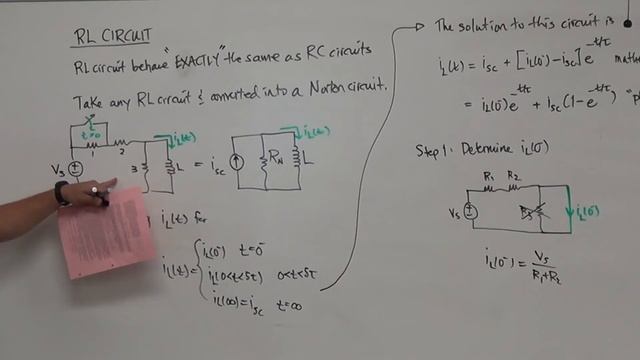 RL CIRCUIT
RL circuit behave "EXACTLY" the same as RC circuits
Take any RL circuit & converted into a Norton circuit.
t=0
1
2
3
Vs
L
iL(t)
=
isc
RN
L
iL(t)
iL(t) for
iL(t)=
iL(0⁻) t=0⁻
iL(0<t<5τ) 0<t<5τ
iL(∞)=isc t=∞
The solution to this circuit is
iL(t) = isc + [iL(0⁻)-isc]e^-t/τ
= iL(0⁻)e^-t/τ + isc(1-e^-t/τ)
Step 1: Determine iL(0⁻)
R1 R2
Vs
R3
iL(0⁻)
iL(0⁻) = Vs
R1+R2